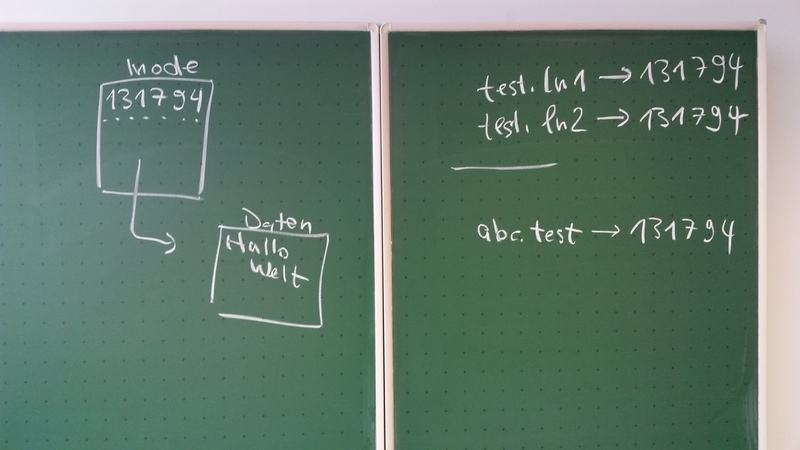 Inode
131794
Daten
Hallo
Welt
test.ln1 → 131794
test.ln2 → 131794
abc.test → 131794